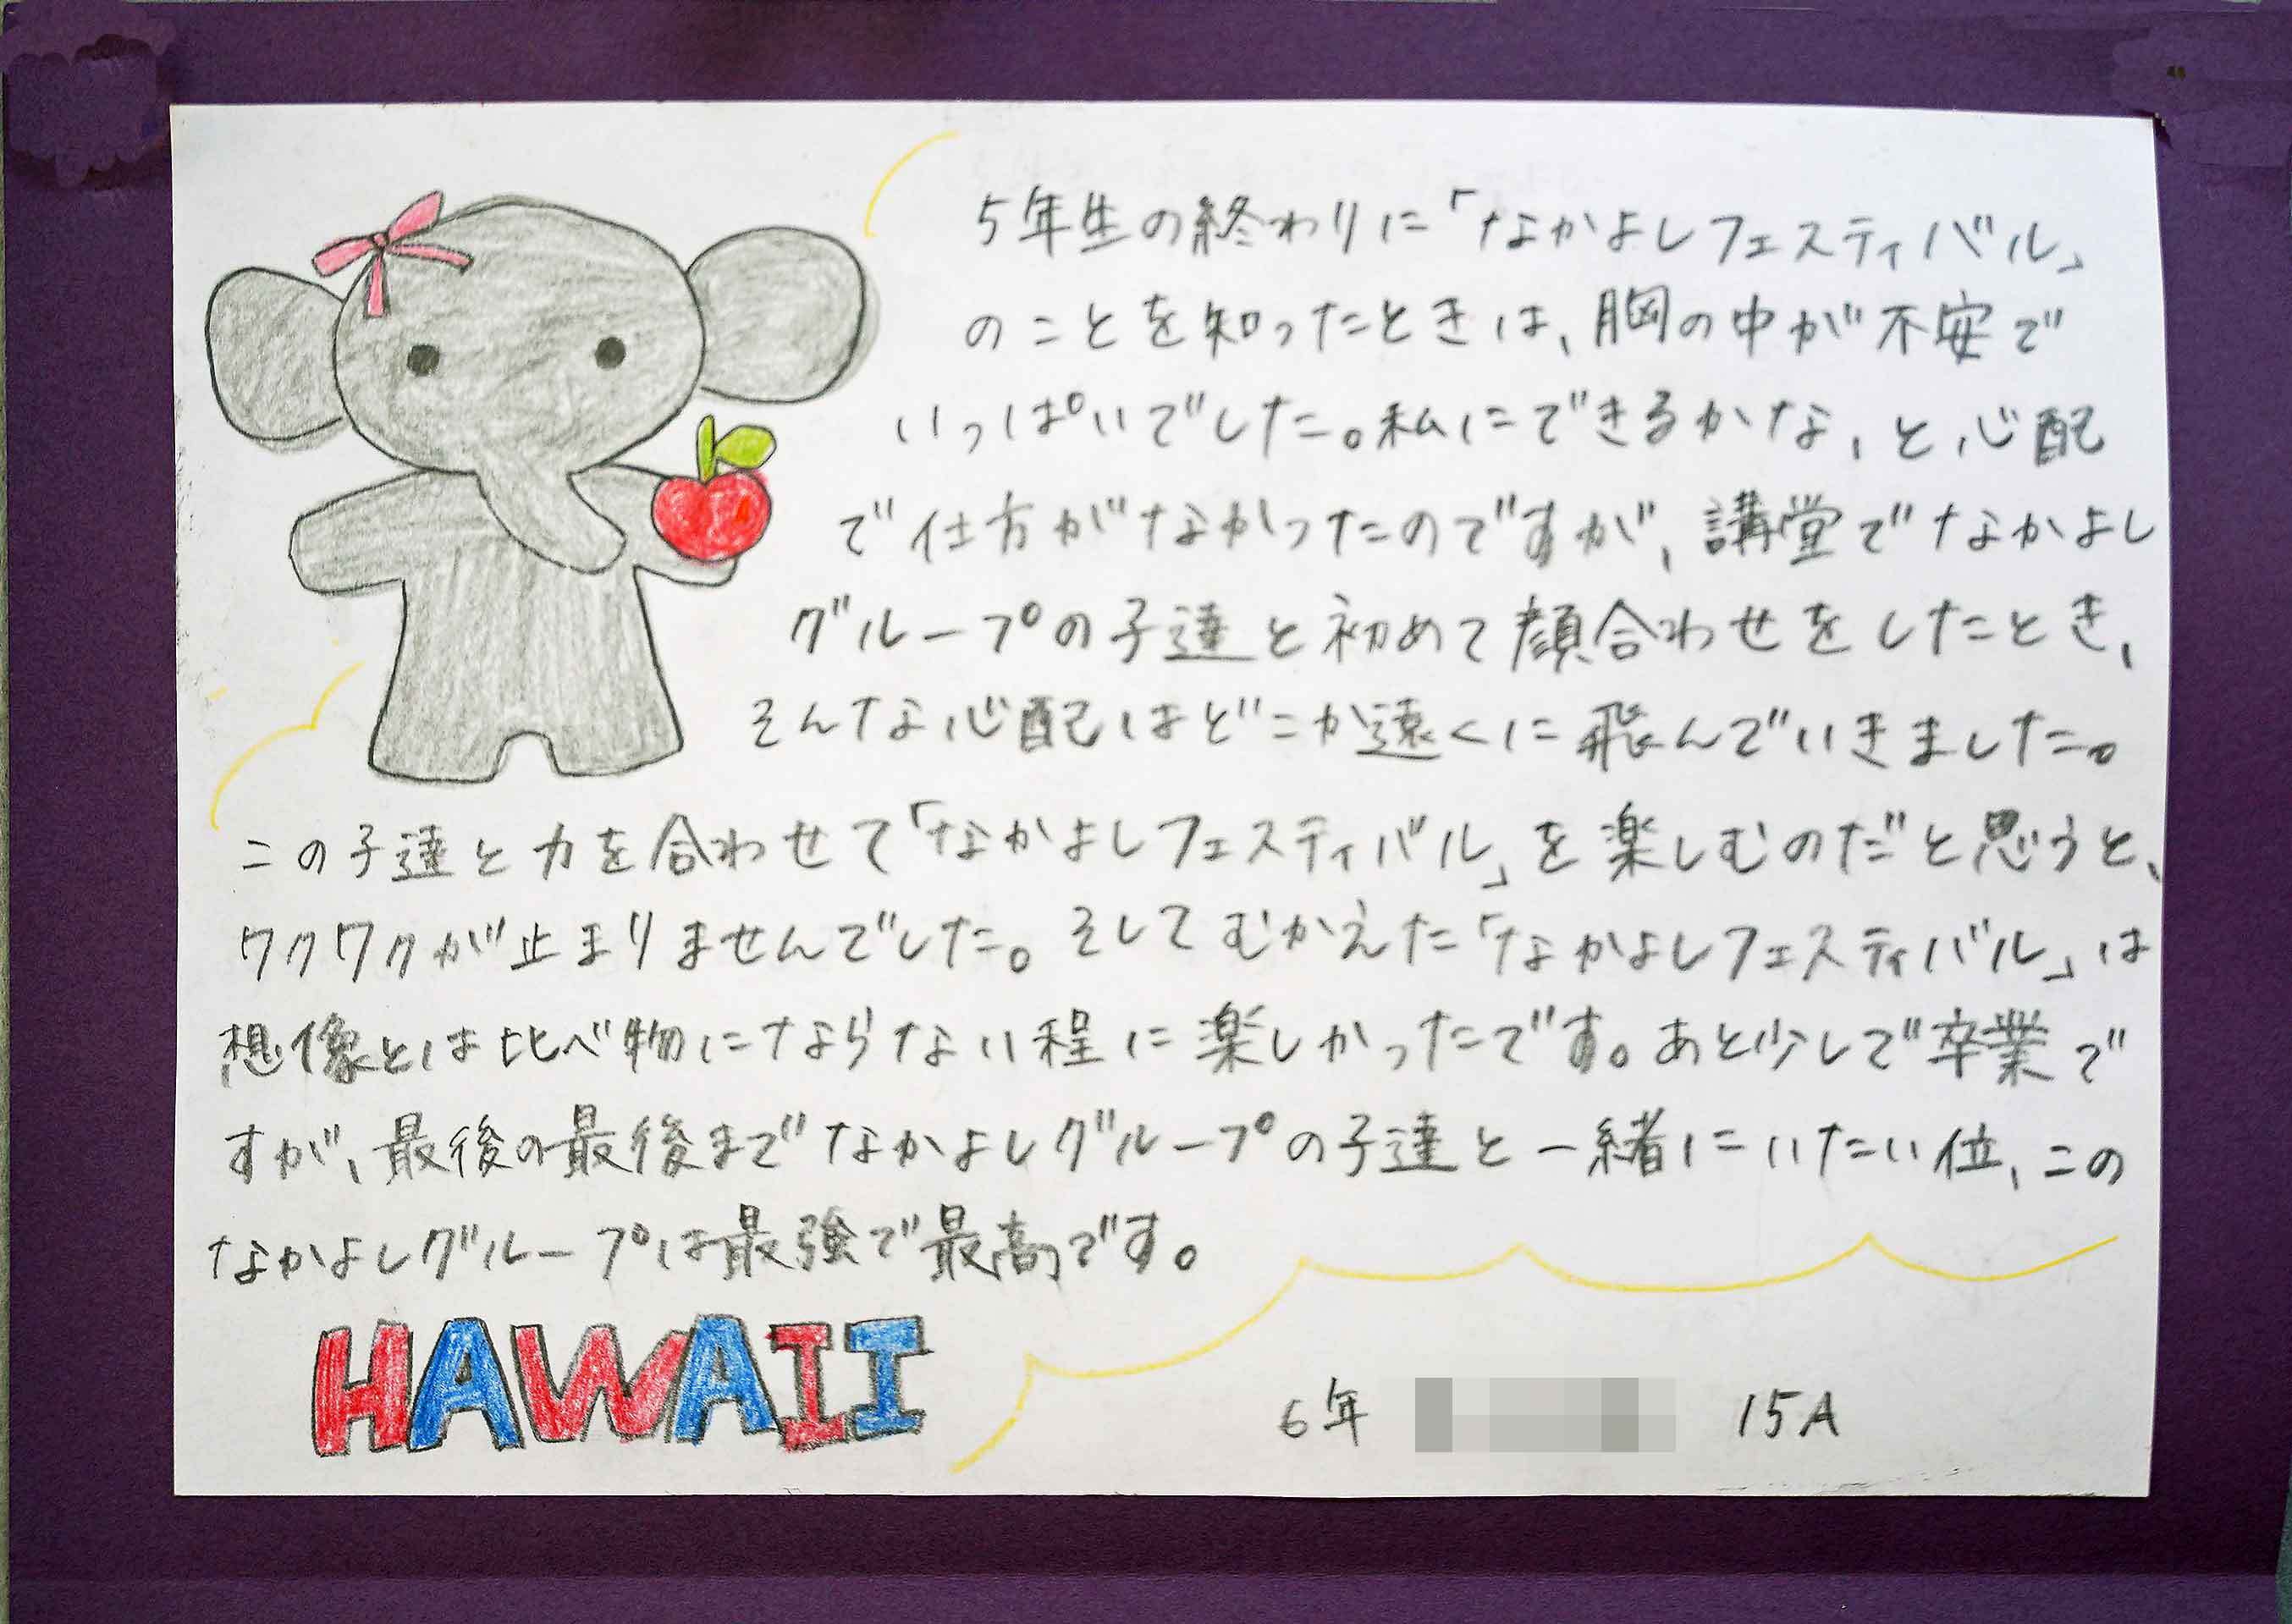 5年生の終わりに「なかよしフェスティバル」
のことを知ったときは、胸の中が不安で
いっぱいでした。私にできるかな、と心配
で仕方がなかったのですが、講堂でなかよし
グループの子達と初めて顔合わせをしたとき、
そんな心配はどこか遠くに飛んでいきました。
この子達と力を合わせて「なかよしフェスティバル」を楽しむのだと思うと、
ワクワクが止まりませんでした。そしてむかえた「なかよしフェスティバル」は
想像とは比べ物にならない程に楽しかったです。あと少しで卒業で
すが、最後の最後までなかよしグループの子達と一緒にいたい位、この
なかよしグループは最強で最高です。
HAWAII
6年 15A